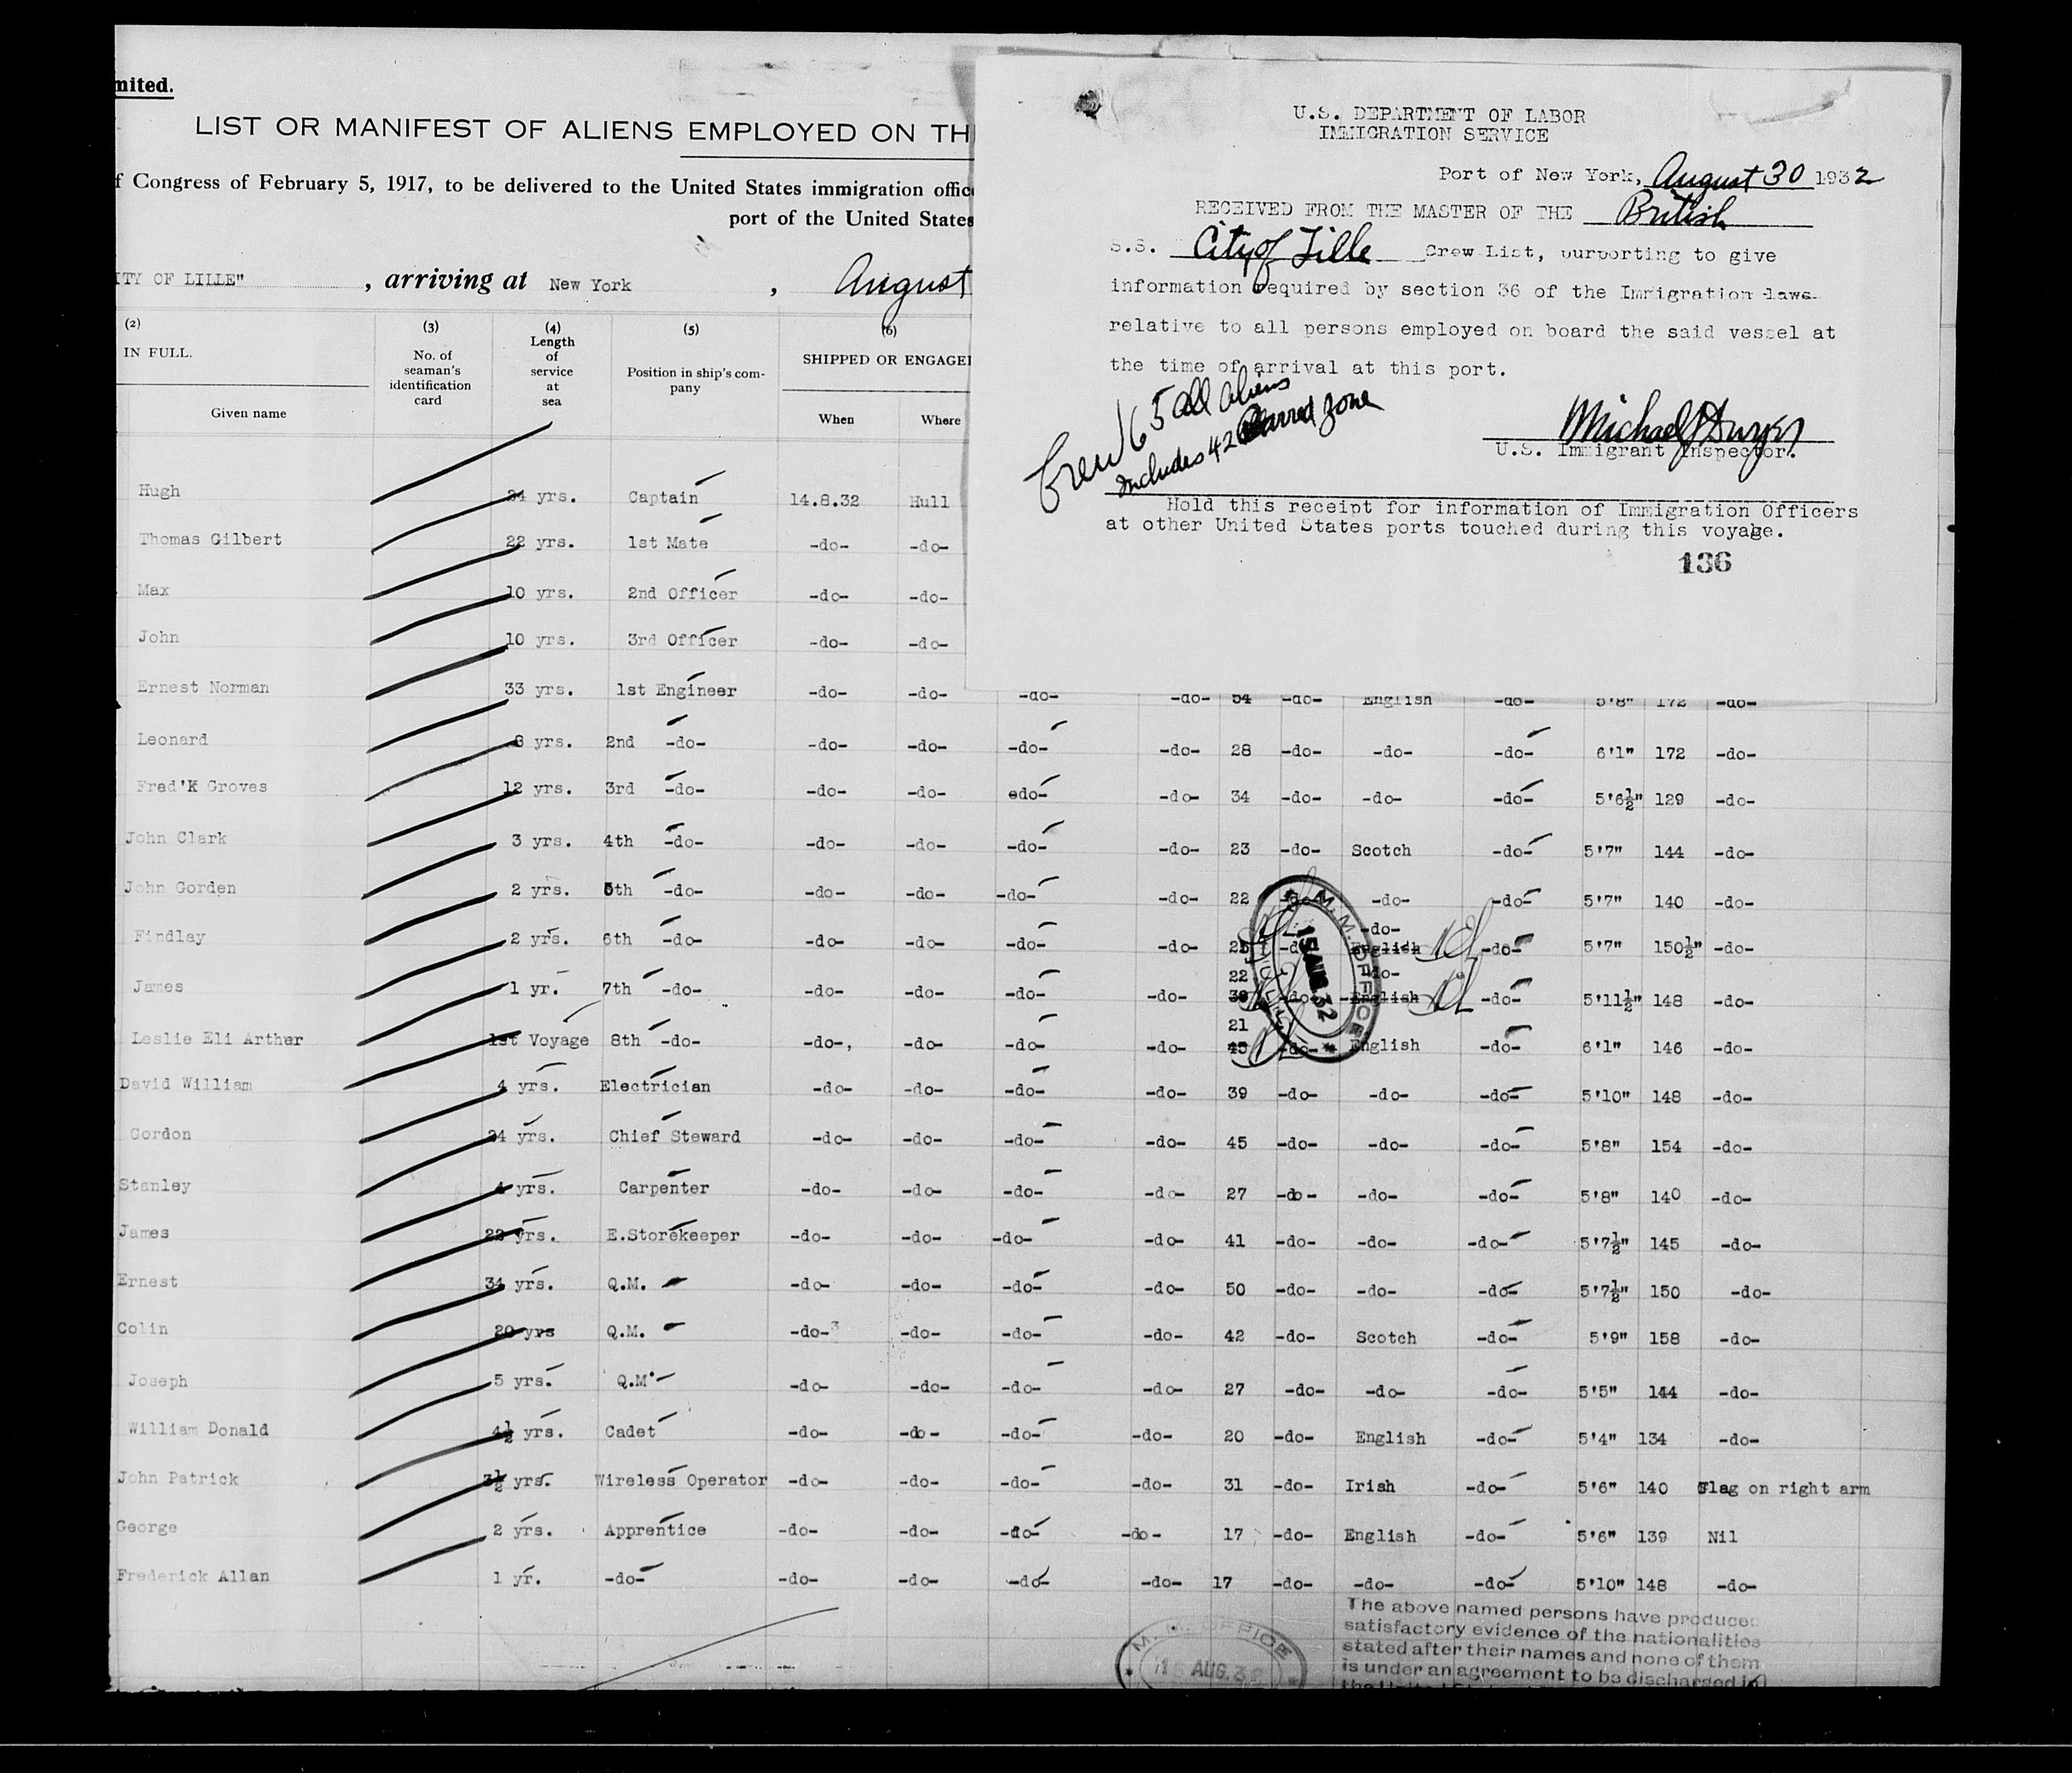 mited.
LIST OR MANIFEST OF ALIENS EMPLOYED ON TH
f Congress of February 5, 1917, to be delivered to the United States immigration offic
port of the United States
ITY OF LILLE" , arriving at New York , August
(2) (3) (4) (5) (6)
IN FULL. No. of seaman's identification card Length of service at sea Position in ship's com-pany SHIPPED OR ENGAGE
Given name When Where
U.S. DEPARTMENT OF LABOR
IMMIGRATION SERVICE
Port of New York, August 30 1932
RECEIVED FROM THE MASTER OF THE British
S.S. City of Lille Crew List, purporting to give
information required by section 36 of the Immigration laws
relative to all persons employed on board the said vessel at
the time of arrival at this port.
Crew 65 all aliens
Includes 42 Barred zone
Michael J Dwyer
U.S. Immigrant Inspector.
Hold this receipt for information of Immigration Officers
at other United States ports touched during this voyage.
136
Hugh 24 yrs. Captain 14.8.32 Hull
Thomas Gilbert 22 yrs. 1st Mate -do- -do-
Max 10 yrs. 2nd Officer -do- -do-
John 10 yrs. 3rd Officer -do- -do-
Ernest Norman 33 yrs. 1st Engineer -do- -do- -do- -do- 54 -do- English -do- 5'8" 172 -do-
Leonard yrs. 2nd -do- -do- -do- -do- -do- 28 -do- -do- -do- 6'1" 172 -do-
Fred'K Groves 12 yrs. 3rd -do- -do- -do- edo- -do- 34 -do- -do- -do- 5'6½" 129 -do-
John Clark 3 yrs. 4th -do- -do- -do- -do- -do- 23 -do- Scotch -do- 5'7" 144 -do-
John Gorden 2 yrs. 5th -do- -do- -do- -do- -do- 22 -do- -do- -do- 5'7" 140 -do-
-do-
Findlay 2 yrs. 6th -do- -do- -do- -do- -do- 21 -do- English -do- 5'7" 150½" -do-
22 -do-
James 1 yr. 7th -do- -do- -do- -do- -do- 39 -do- English -do- 5'11½" 148 -do-
21
Leslie Eli Arthur 1st Voyage 8th -do- -do-, -do- -do- -do- 45 -do- English -do- 6'1" 146 -do-
M.M. OFFICE
15 AUG 32
David William 4 yrs. Electrician -do- -do- -do- -do- 39 -do- -do- -do- 5'10" 148 -do-
Gordon 24 yrs. Chief Steward -do- -do- -do- -do- 45 -do- -do- -do- 5'8" 154 -do-
Stanley 4 yrs. Carpenter -do- -do- -do- -do- 27 -do- -do- -do- 5'8" 140 -do-
James 22 yrs. E.Storekeeper -do- -do- -do- -do- 41 -do- -do- -do- 5'7½" 145 -do-
Ernest 34 yrs. Q.M. -do- -do- -do- -do- 50 -do- -do- -do- 5'7½" 150 -do-
Colin 20 yrs Q.M. -do- -do- -do- -do- 42 -do- Scotch -do- 5'9" 158 -do-
Joseph 5 yrs. Q.M. -do- -do- -do- -do- 27 -do- -do- -do- 5'5" 144 -do-
William Donald 4½ yrs. Cadet -do- -do- -do- -do- 20 -do- English -do- 5'4" 134 -do-
John Patrick 3½ yrs. Wireless Operator -do- -do- -do- -do- 31 -do- Irish -do- 5'6" 140 Flag on right arm
George 2 yrs. Apprentice -do- -do- -do- -do- 17 -do- English -do- 5'6" 139 Nil
Frederick Allan 1 yr. -do- -do- -do- -do- -do- 17 -do- -do- -do- 5'10" 148 -do-
The above named persons have produced
satisfactory evidence of the nationalities
stated after their names and none of them
is under an agreement to be discharged in
M.M. OFFICE
15 AUG.32